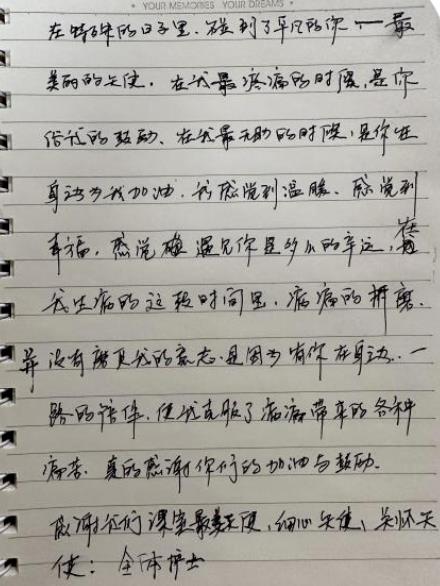 YOUR MEMORIES YOUR DREAMS
在特殊的日子里,碰到了平凡的你一一最
美丽的天使。在我最疼痛的时候,是你
给我的鼓励、在我最无助的时候,是你在
身边为我加油.我感觉到温暖、感觉到
幸福,感觉碰遇见你是多么的幸运,在
我生病的这段时间里,病痛的折磨.
并没有磨灭我的意志.是因为有你在身边.一
路的陪伴.使我克服了病痛带来的各种
痛苦.真的感谢你们的加油与鼓励.
感谢我们课室最美天使,细心天使、关怀天
使:全体护士